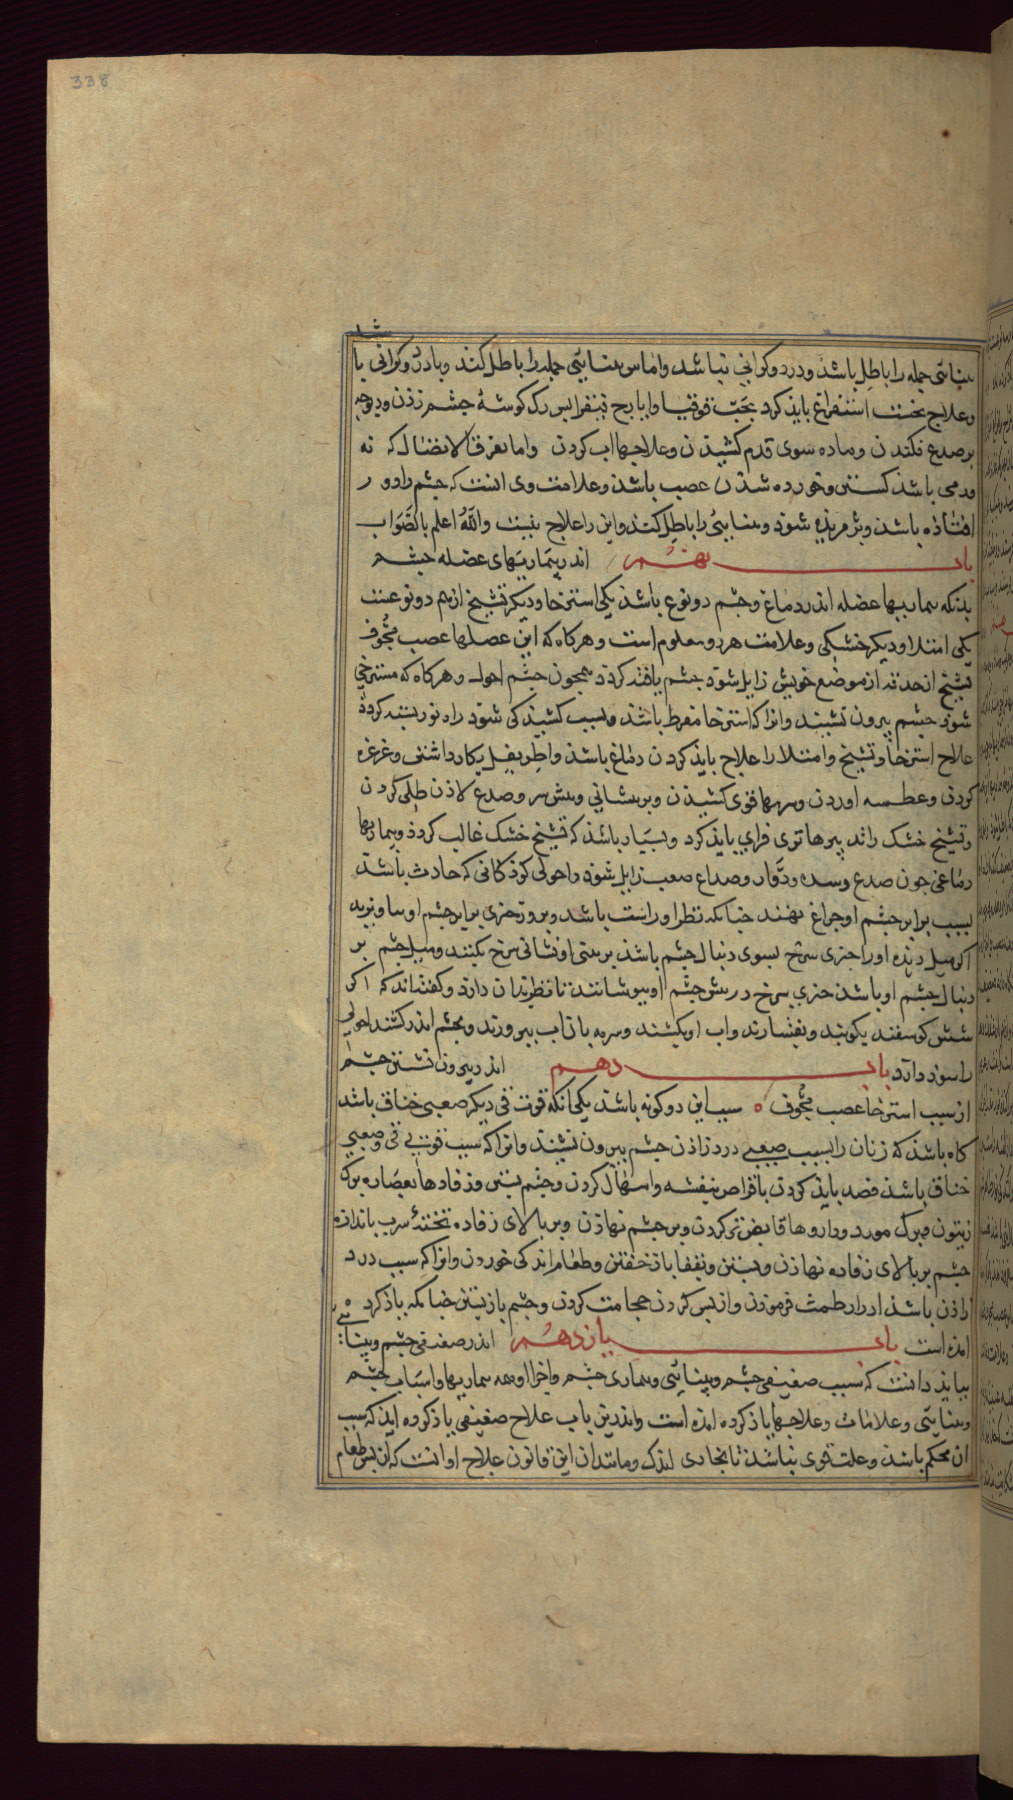 338
بینائی جمله را باطل باشد و درد و کرانی نباشد واماس بینایی جمله را باطل کند و با درد و کرانی با
شد
وعلاج نخست استفراغ بایذ کرد بحب قوقیا وایارج فیقرا پس رک کوشهٔ جشم زذن و دیوجه
بر صدغ فکندن و ماده سوی قدم کشیذن وعلاجها اب کردن واما تفرق الاتصال که نه
ورمی باشد کسستن و خورده شدن عصب باشذ وعلامت وی انست که جشم را دور
افتاذه باشد و پژمریذه شوذ و بینایی را باطل کند واین را علاج نیست والله اعلم بالصواب
باب نهم اندر بیماریهای عضله جشم
بدنکه بیماریها عضله اندر دماغ وجشم دو نوع باشد یکی استرخا ودیکر تشنج از هم دو نوعست
یکی امتلا ودیکر خشکی وعلامت هر دو معلوم است وهرکاه که این عصلها عصب مجوف
تشنج از حدقه از موضع خویش زایل شود جشم یافته کردد همجون جشم احول وهرکاه که مسترخی
شوذ جشم بیرون نشیند وانرا که استرخا مفرط باشذ وبسب کشیذکی شود راه نور بسته کردذ
علاج استرخا وتشنج وامتلا را علاج بایذ کردن دماغ باشذ واطریفل بکار داشتن وغرغره
کردن وعطسه اوردن وسرمها قوی کشیذن وبر بیشانی وبیش سر وصدغ لاذن طلی کردن
وتشنج خشک راند بیرها تری فزای بایذ کرد وبسیار باشذ که تشنج خشک غالب کردذ وبیماریها
دماغی جون صدع وسده ودوار وصداع صعب زایل شوذ واحولی کوذکانی که حادث باشد
بسبب برابر جشم او جراغ نهند جنانکه نظر او راست باشد وبروز جیزی برابر جشم او بیاویزید
اکر میل دیذه او را جیزی سرخ بسوی دنبال جشم باشذ بر بینی او نشانی سرخ بکنند ومیل جشم بر
دنبال جشم او باشذ جیزی سرخ در بیش جشم او بپوشانند تا نظر بدان دارد وکفته‌اند که اکر
شش کوسفند بکوبید وبفشارند واب او بکشند وسرمه بان اب ببرورند وبجشم اندر کشند احولی
را سوذ دارذ باب دهم اندر بیرون نشستن جشم
از سبب استرخا عصب مجوف سبب این دو کونه باشد یکی انکه قوت قی دیکر صعبی خناق باشد
کاه باشذ که زنان را بسبب صعبی درد زاذن جشم بیرون نشیند وانرا که سبب قوت قی وصعبی
خناق باشذ فصد بایذ کردن باقراص بنفشه واسهال کردن وجشم بستن ورفادها بعصاره برک
زیتون وبرک مورد وداروها قابض تر کردن وبر جشم نهاذن وبر بالای رفاده تختهٔ سرب باندازه
جشم بر بالای رفاده نهاذن وببستن وبقفا باز خفتن وطعام اندکی خوردن وانرا که سبب درد
زاذن باشذ ادرار طمث فرموذن واز پس کردن حجامت کردن وجشم باز بستن جنانکه یاذ کرد
امذه است باب یازدهم اندر ضعیفی جشم وبینا:
ئی
ببایذ دانست که سبب ضعیفی جشم وبینائی وبیماری جشم واجزا او همه بیماریها واسباب جشم
وبینایی وعلامات وعلاجها یاذ کرده امذه است واندرین باب علاج ضعیفی یاذ کرده ایذ که سبب
ان محکم باشذ وعلت قوی نباشذ تا بخاری اندک ومانند ان این قانون علاج او انست که از پس طعام